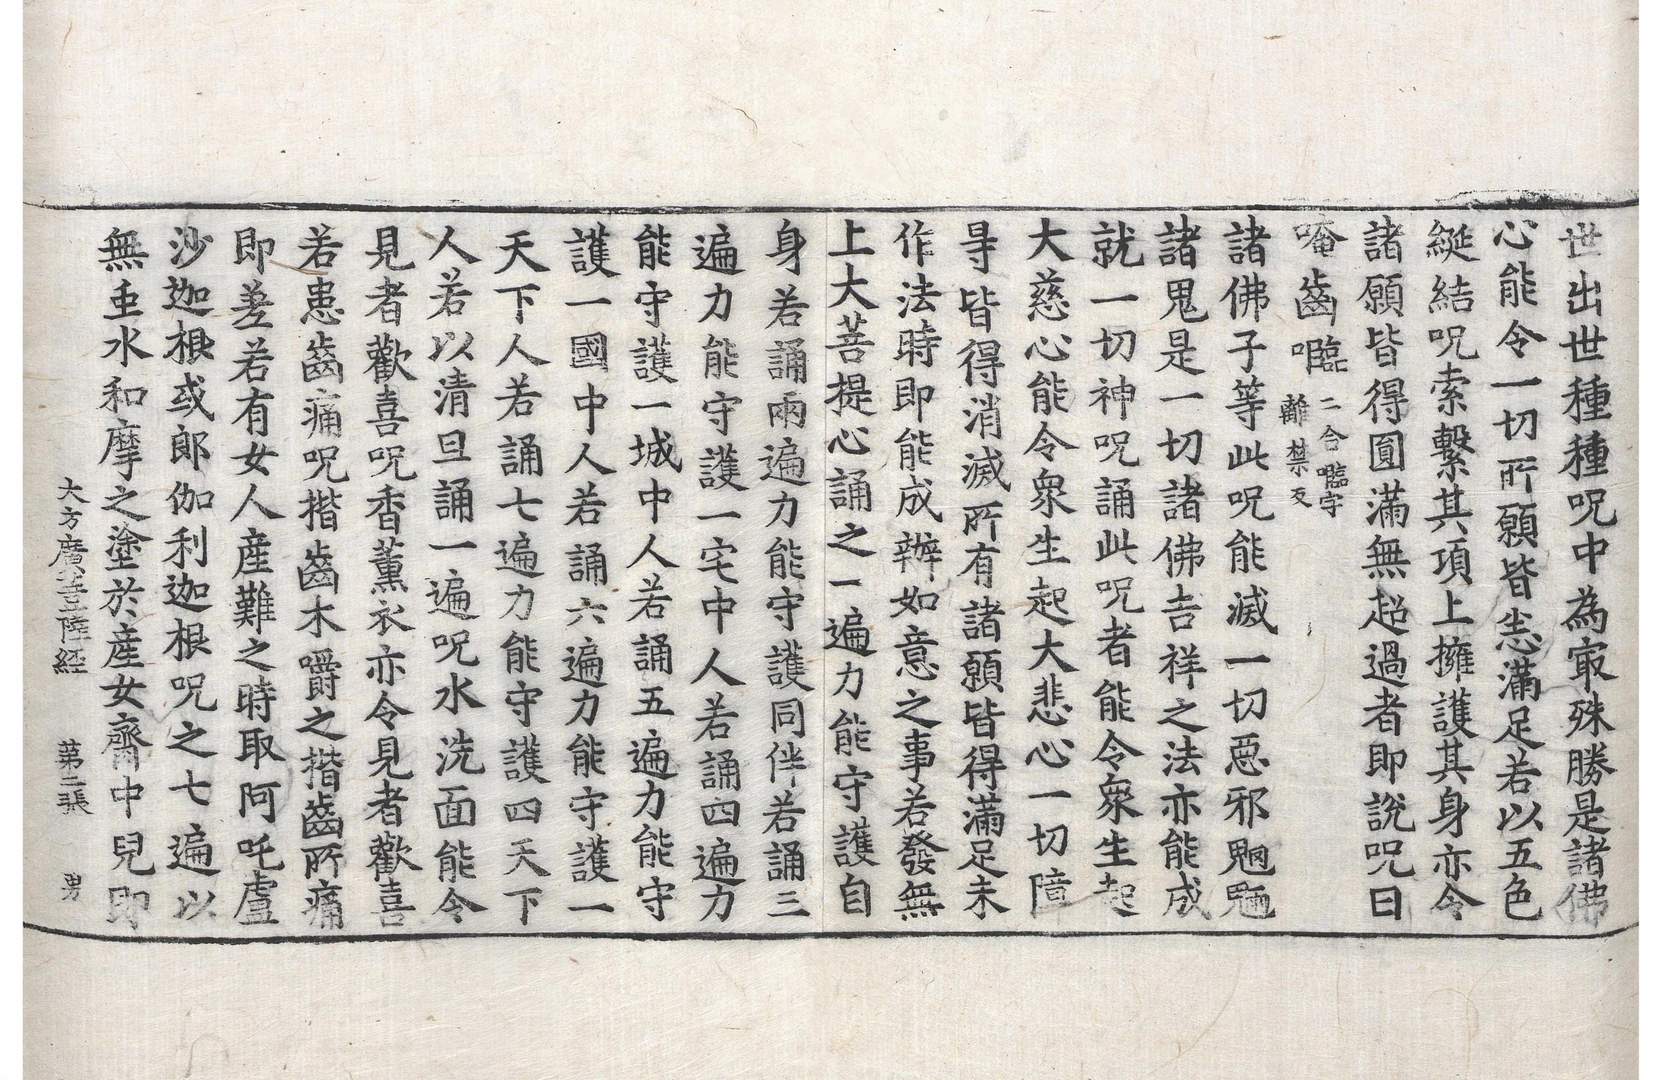 世出世種種呪中為㝡殊勝是諸佛
心能令一切所願皆悉滿足若以五色
綖結呪索繫其項上擁護其身亦令
諸願皆得圓滿無超過者即說呪曰
唵齒㘕二合㘕字
離禁反
諸佛子等此呪能滅一切惡邪魍魎
諸鬼是一切諸佛吉祥之法亦能成
就一切神呪誦此呪者能令衆生起
大慈心能令衆生起大悲心一切障
㝵皆得消滅所有諸願皆得滿足未
作法時即能成辦如意之事若發無
上大菩提心誦之一遍力能守護自
身若誦兩遍力能守護同伴若誦三
遍力能守護一宅中人若誦四遍力
能守護一城中人若誦五遍力能守
護一國中人若誦六遍力能守護一
天下人若誦七遍力能守護四天下
人若以清旦誦一遍呪水洗面能令
見者歡喜呪香薰衣亦令見者歡喜
若患齒痛呪揩齒木嚼之揩齒所痛
即差若有女人産難之時取阿吒盧
沙迦根或郎伽利迦根呪之七遍以
無虫水和摩之塗於産女齊中兒即
大方廣菩薩經　第二張　男